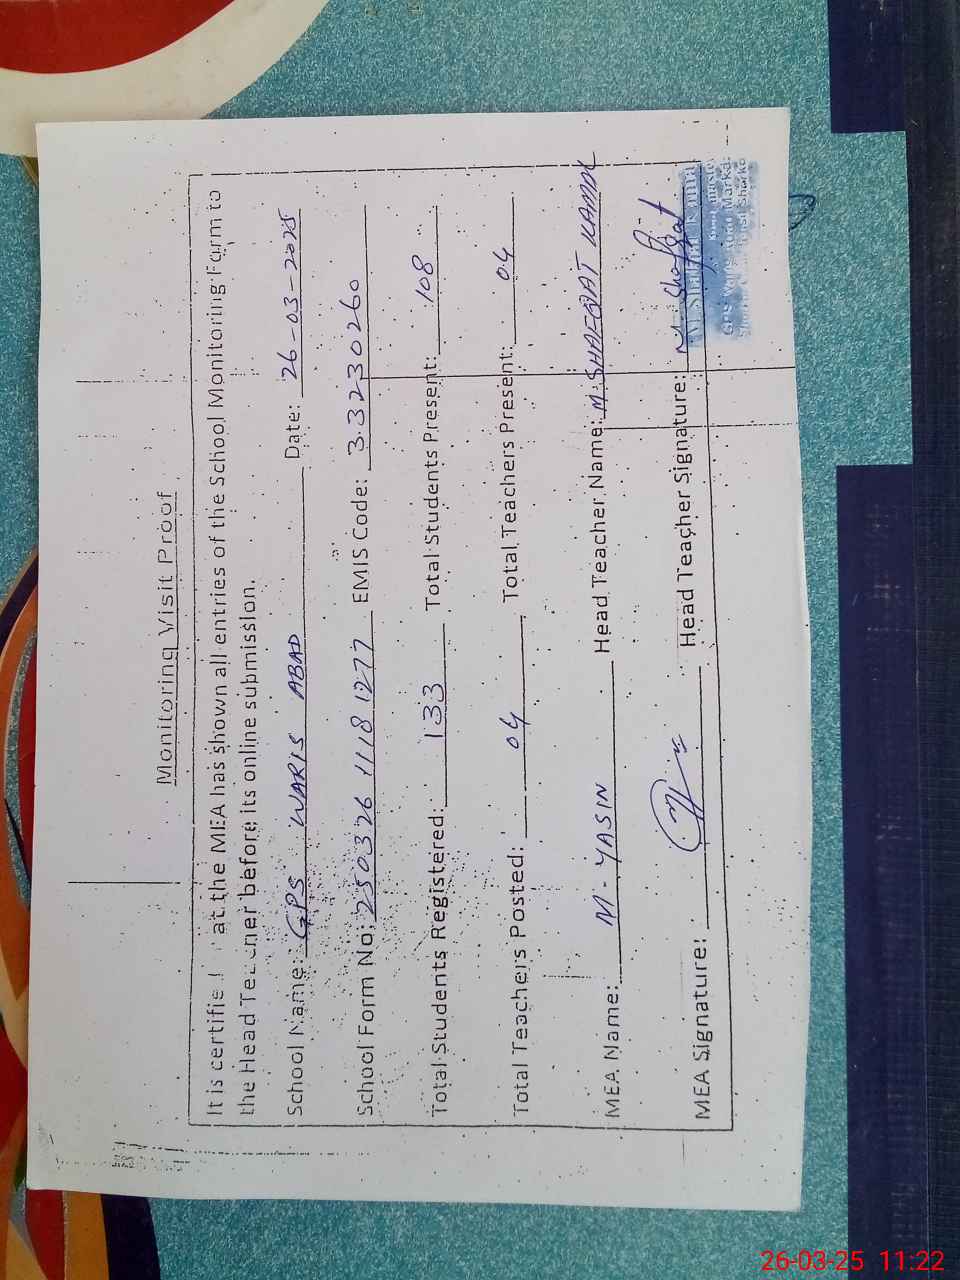 Monitoring Visit Proof
It is certifie at the MEA has shown all entries of the School Monitoring Form to
the Head Teacher before its online submission.
School Name: GPS WARIS ABAD Date: 26-03-2025
School Form No: 250326 1118 1277 EMIS Code: 33230260
Total Students Registered: 133 Total Students Present: 108
Total Teachers Posted: 04 Total Teachers Present: 04
MEA Name: M-YASIN Head Teacher Name: M. SHAFQAT KAMAL
MEA Signature: Head Teacher Signature: M. Shafqat
26-03-25 11:22